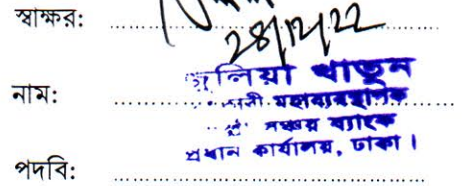 স্বাক্ষর:
28/12/22
নাম:
খাতুন
মহাব্যবস্থাপক
সঞ্চয় ব্যাংক
প্রধান কার্যালয়, ঢাকা।
পদবি: